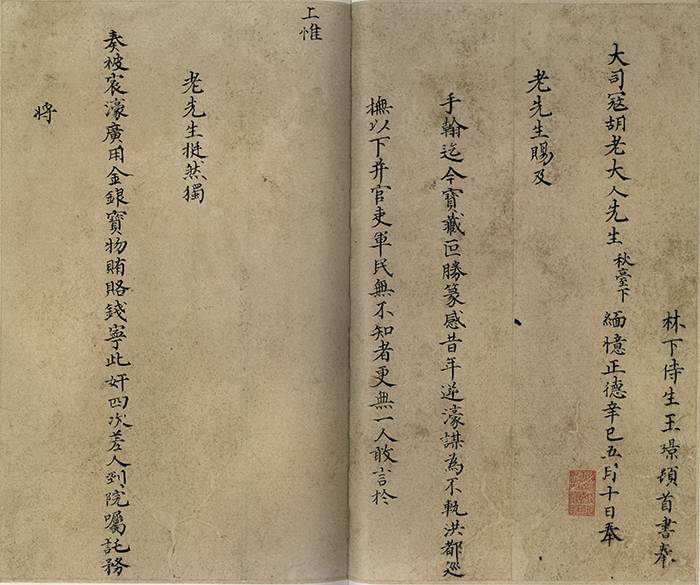 林下侍生王璟頓首書奉
大司冦胡老大人先生秋臺下緬憶正德辛巳五月十日奉
老先生賜及
手翰迄今寳藏叵勝篆感昔年逆濠謀為不軌洪都巡
撫以下并官吏軍民無不知者更無一人敢言於
上惟
老先生挺然獨
奏被宸濠廣用金銀寳物賄賂錢寧此奸四次差人到院囑託務
將